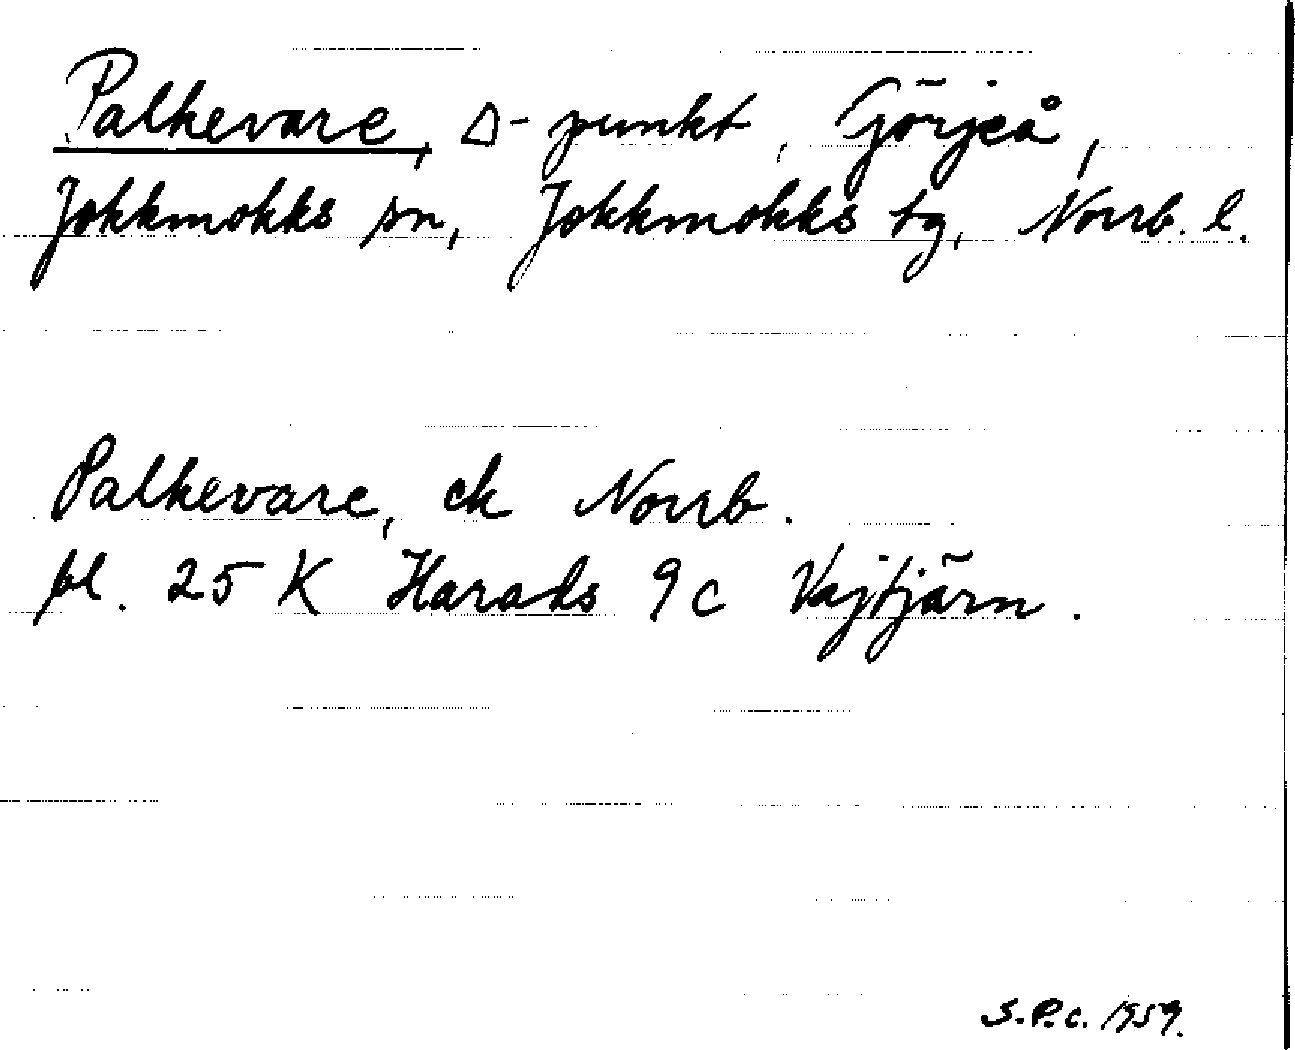 Palkevare, Δ-punkt, Görjeå,
Jokkmokks sn, Jokkmokks tg, Norrb. l.
Palkevare, ek Norrb.
bl. 25 K Harads 9 c Vajtjärn.
S.P.c. 1959.